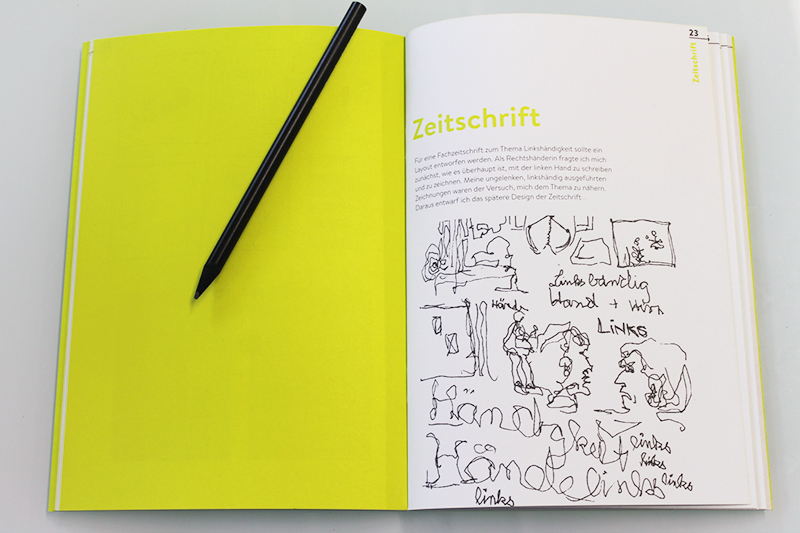 23
Zeitschrift
Zeitschrift
Für eine Fachzeitschrift zum Thema Linkshändigkeit sollte ein
Layout entworfen werden. Als Rechtshänderin fragte ich mich
zunächst, wie es überhaupt ist, mit der linken Hand zu schreiben
und zu zeichnen. Meine ungelenken, linkshändig ausgeführten
Zeichnungen waren der Versuch, mich dem Thema zu nähern.
Daraus entwarf ich das spätere Design der Zeitschrift
Hand + Hirn
LINKS
Händigkeit
links
links
Hände links
links
links